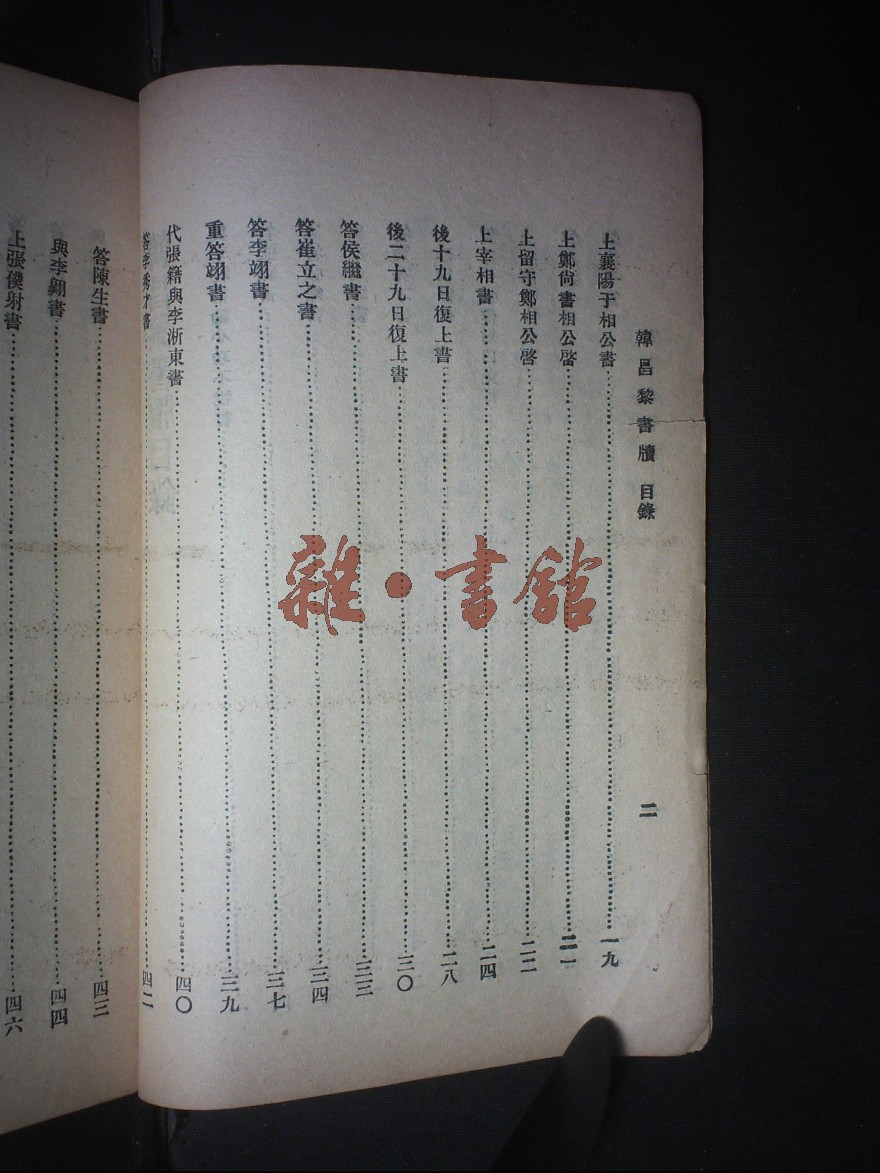 韓昌黎書牘 目錄
二
上襄陽于相公書……一九
上鄭尙書相公啓……二一
上留守鄭相公啓……二二
上宰相書……二四
後十九日復上書……二八
後二十九日復上書……三〇
答侯繼書……三三
答崔立之書……三四
答李翊書……三七
重答翊書……三九
代張籍與李浙東書……四〇
答李秀才書……四二
答陳生書……四三
與李翺書……四四
上張僕射書……四六
雜·書館